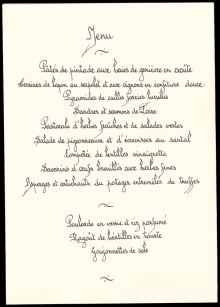 Menu
Pâtés de pintade aux baies de genièvre en croûte
Terrines de lapin au serpolet et aux oignons en confiture douce
Pyramides de cailles farcies truffées
Sandres et saumons de Loire
Pastorale d'herbes fraîches et de salades vertes
Salade de pigeonneaux et d'écrevisses au santal
Compotée de lentilles vinaigrette
Savarins d'œufs brouillés aux herbes fines
Asperges et artichauts du potager entremêlés de truffes
Poularde en vessie et riz parfumé
Ragoût de béatilles en tourte
Goujonnettes de sole